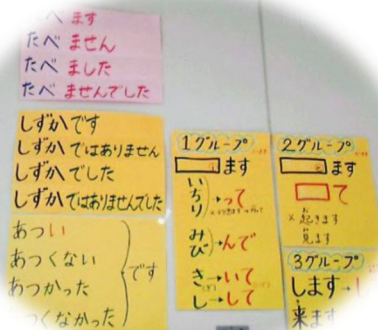 たべ ます
たべ ません
たべ ました
たべ ませんでした
しずかです
しずかではありません
しずかでした
しずかではありませんでした
あつい
あつくない
あつかった
つくなかった
です
1グループ
ます
い
ち
り
→って
み
び
→んで
き→いて
し→して
2グループ
ます
て
×起きます
見ます
3グループ
します→し
来ます